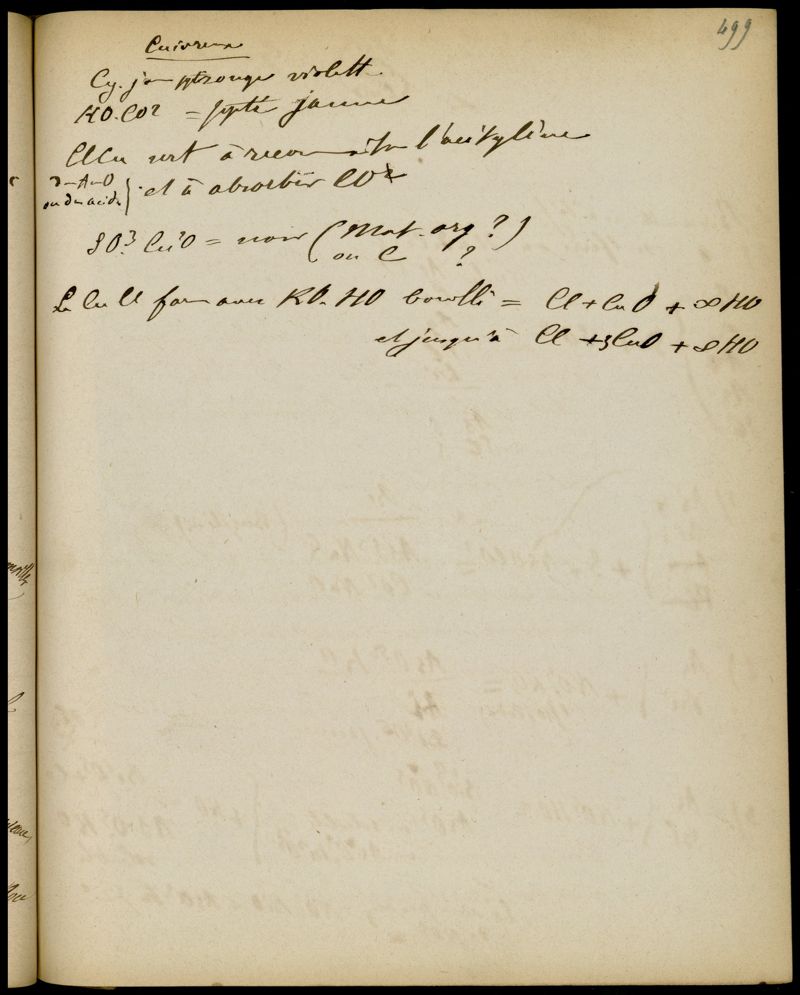 499
Cuivreux
Cy. ja ppt rouge violett
KO.CO2 = ppté jaune
ClCu sert à reconnaitre l'acétylène
et à absorber CO2
ou dn acide
SO3. Cu2O = noir (Mat. org ?)
ou C ?
Le CuCl form avec KO. HO bouilli = Cl + CuO + ∞ HO
et jusqu'à Cl + 3CuO + ∞ HO